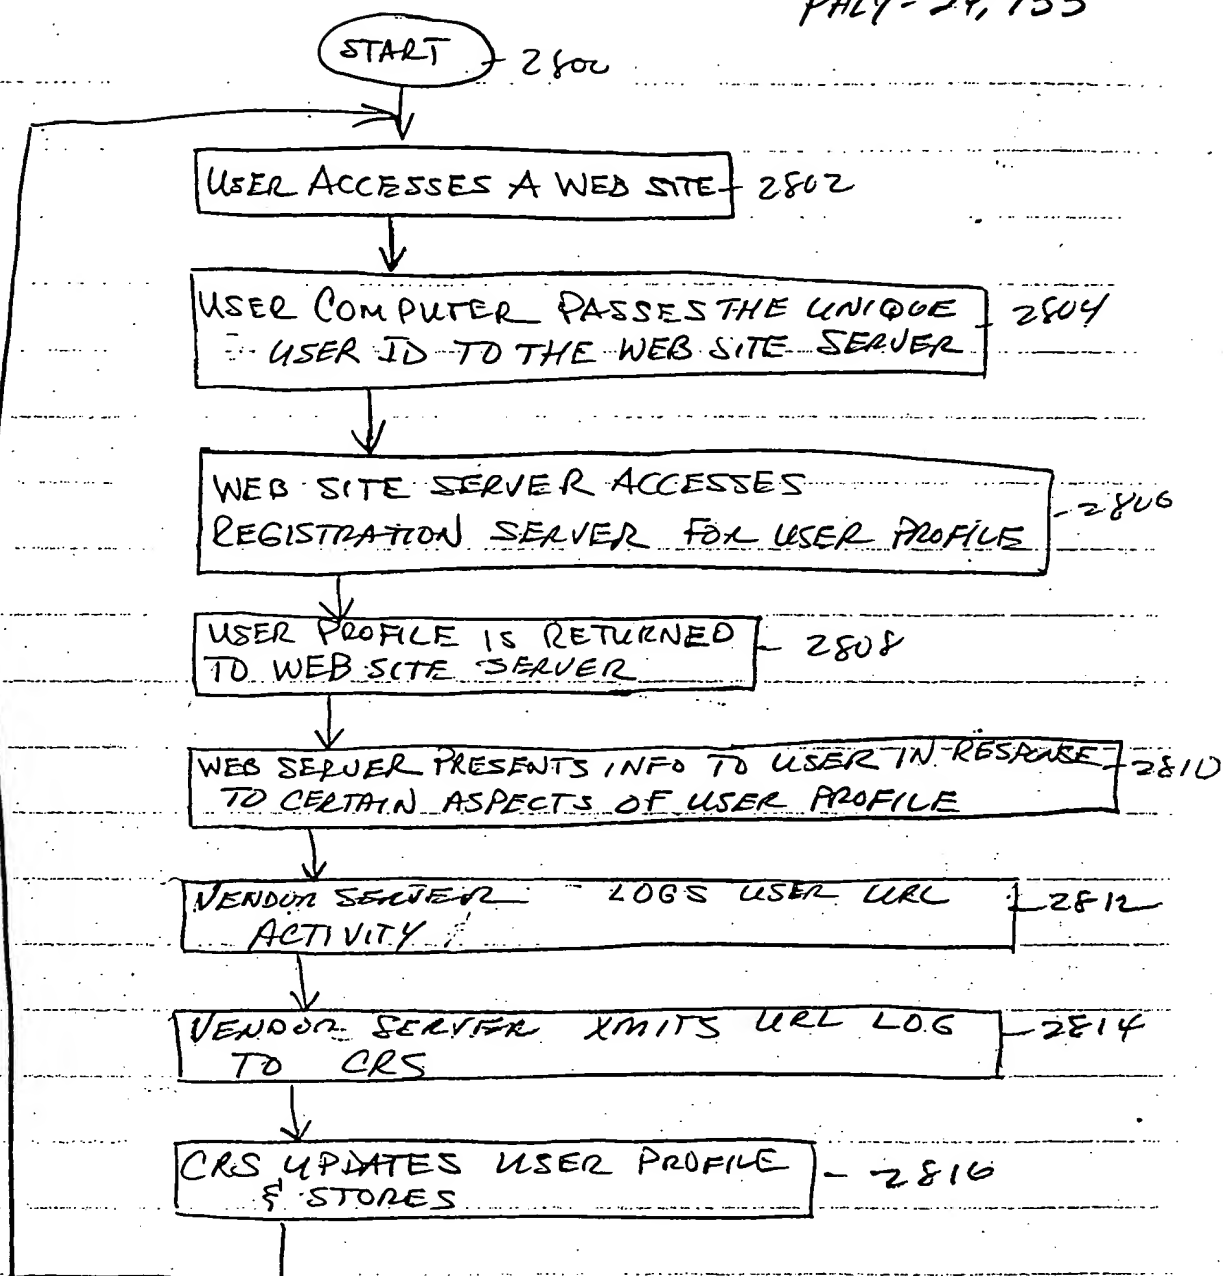 PHLY-24,733
START 2800
USER ACCESSES A WEB SITE 2802
USER COMPUTER PASSES THE UNIQUE 2804
USER ID TO THE WEB SITE SERVER
WEB SITE SERVER ACCESSES
REGISTRATION SERVER FOR USER PROFILE 2806
USER PROFILE IS RETURNED 2808
TO WEB SITE SERVER
WEB SERVER PRESENTS INFO TO USER IN RESPONSE 2810
TO CERTAIN ASPECTS OF USER PROFILE
VENDOR SERVER LOGS USER URL 2812
ACTIVITY
VENDOR SERVER XMITS URL LOG 2814
TO CRS
CRS UPDATES USER PROFILE 2816
& STORES